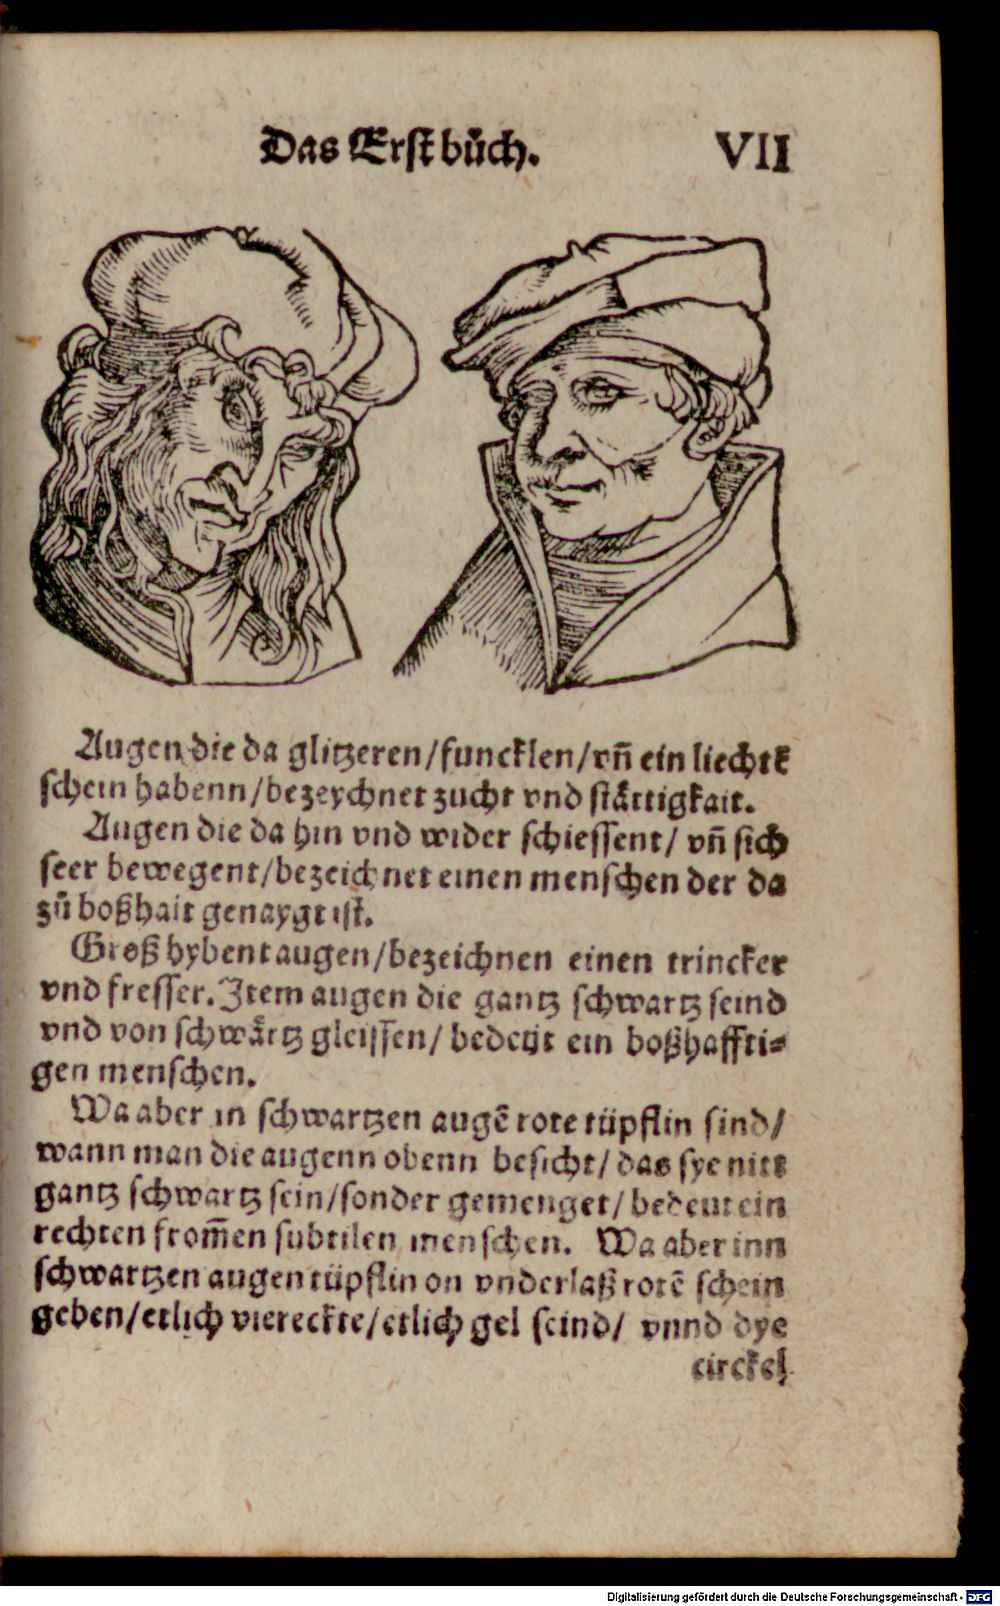 Das Erst bůch.
VII
Augen die da glitzeren/funcklen/vñ ein liechtẽ
schein habenn/bezeychnet zucht vnd stättigkait.
Augen die da hin vnd wider schiessent/ vñ sich
seer bewegent/bezeichnet einen menschen der da
zů boßhait genaygt ist.
Groß hybent augen/bezeichnen einen trincker
vnd fresser. Item augen die gantz schwartz seind
vnd von schwärtz gleissen/ bedeüt ein boßhaffti⸗
gen menschen.
Wa aber in schwartzen augẽ rote tüpflin sind/
wann man die augenn obenn besicht/ das sye nitt
gantz schwartz sein/sonder gemenget/ bedeut ein
rechten from̃en subtilen menschen. Wa aber inn
schwartzen augen tüpflin on vnderlaß rotẽ schein
geben/etlich viereckte/etlich gel seind/ vnnd dye
circkel
Digitalisierung gefördert durch die Deutsche Forschungsgemeinschaft - DFG